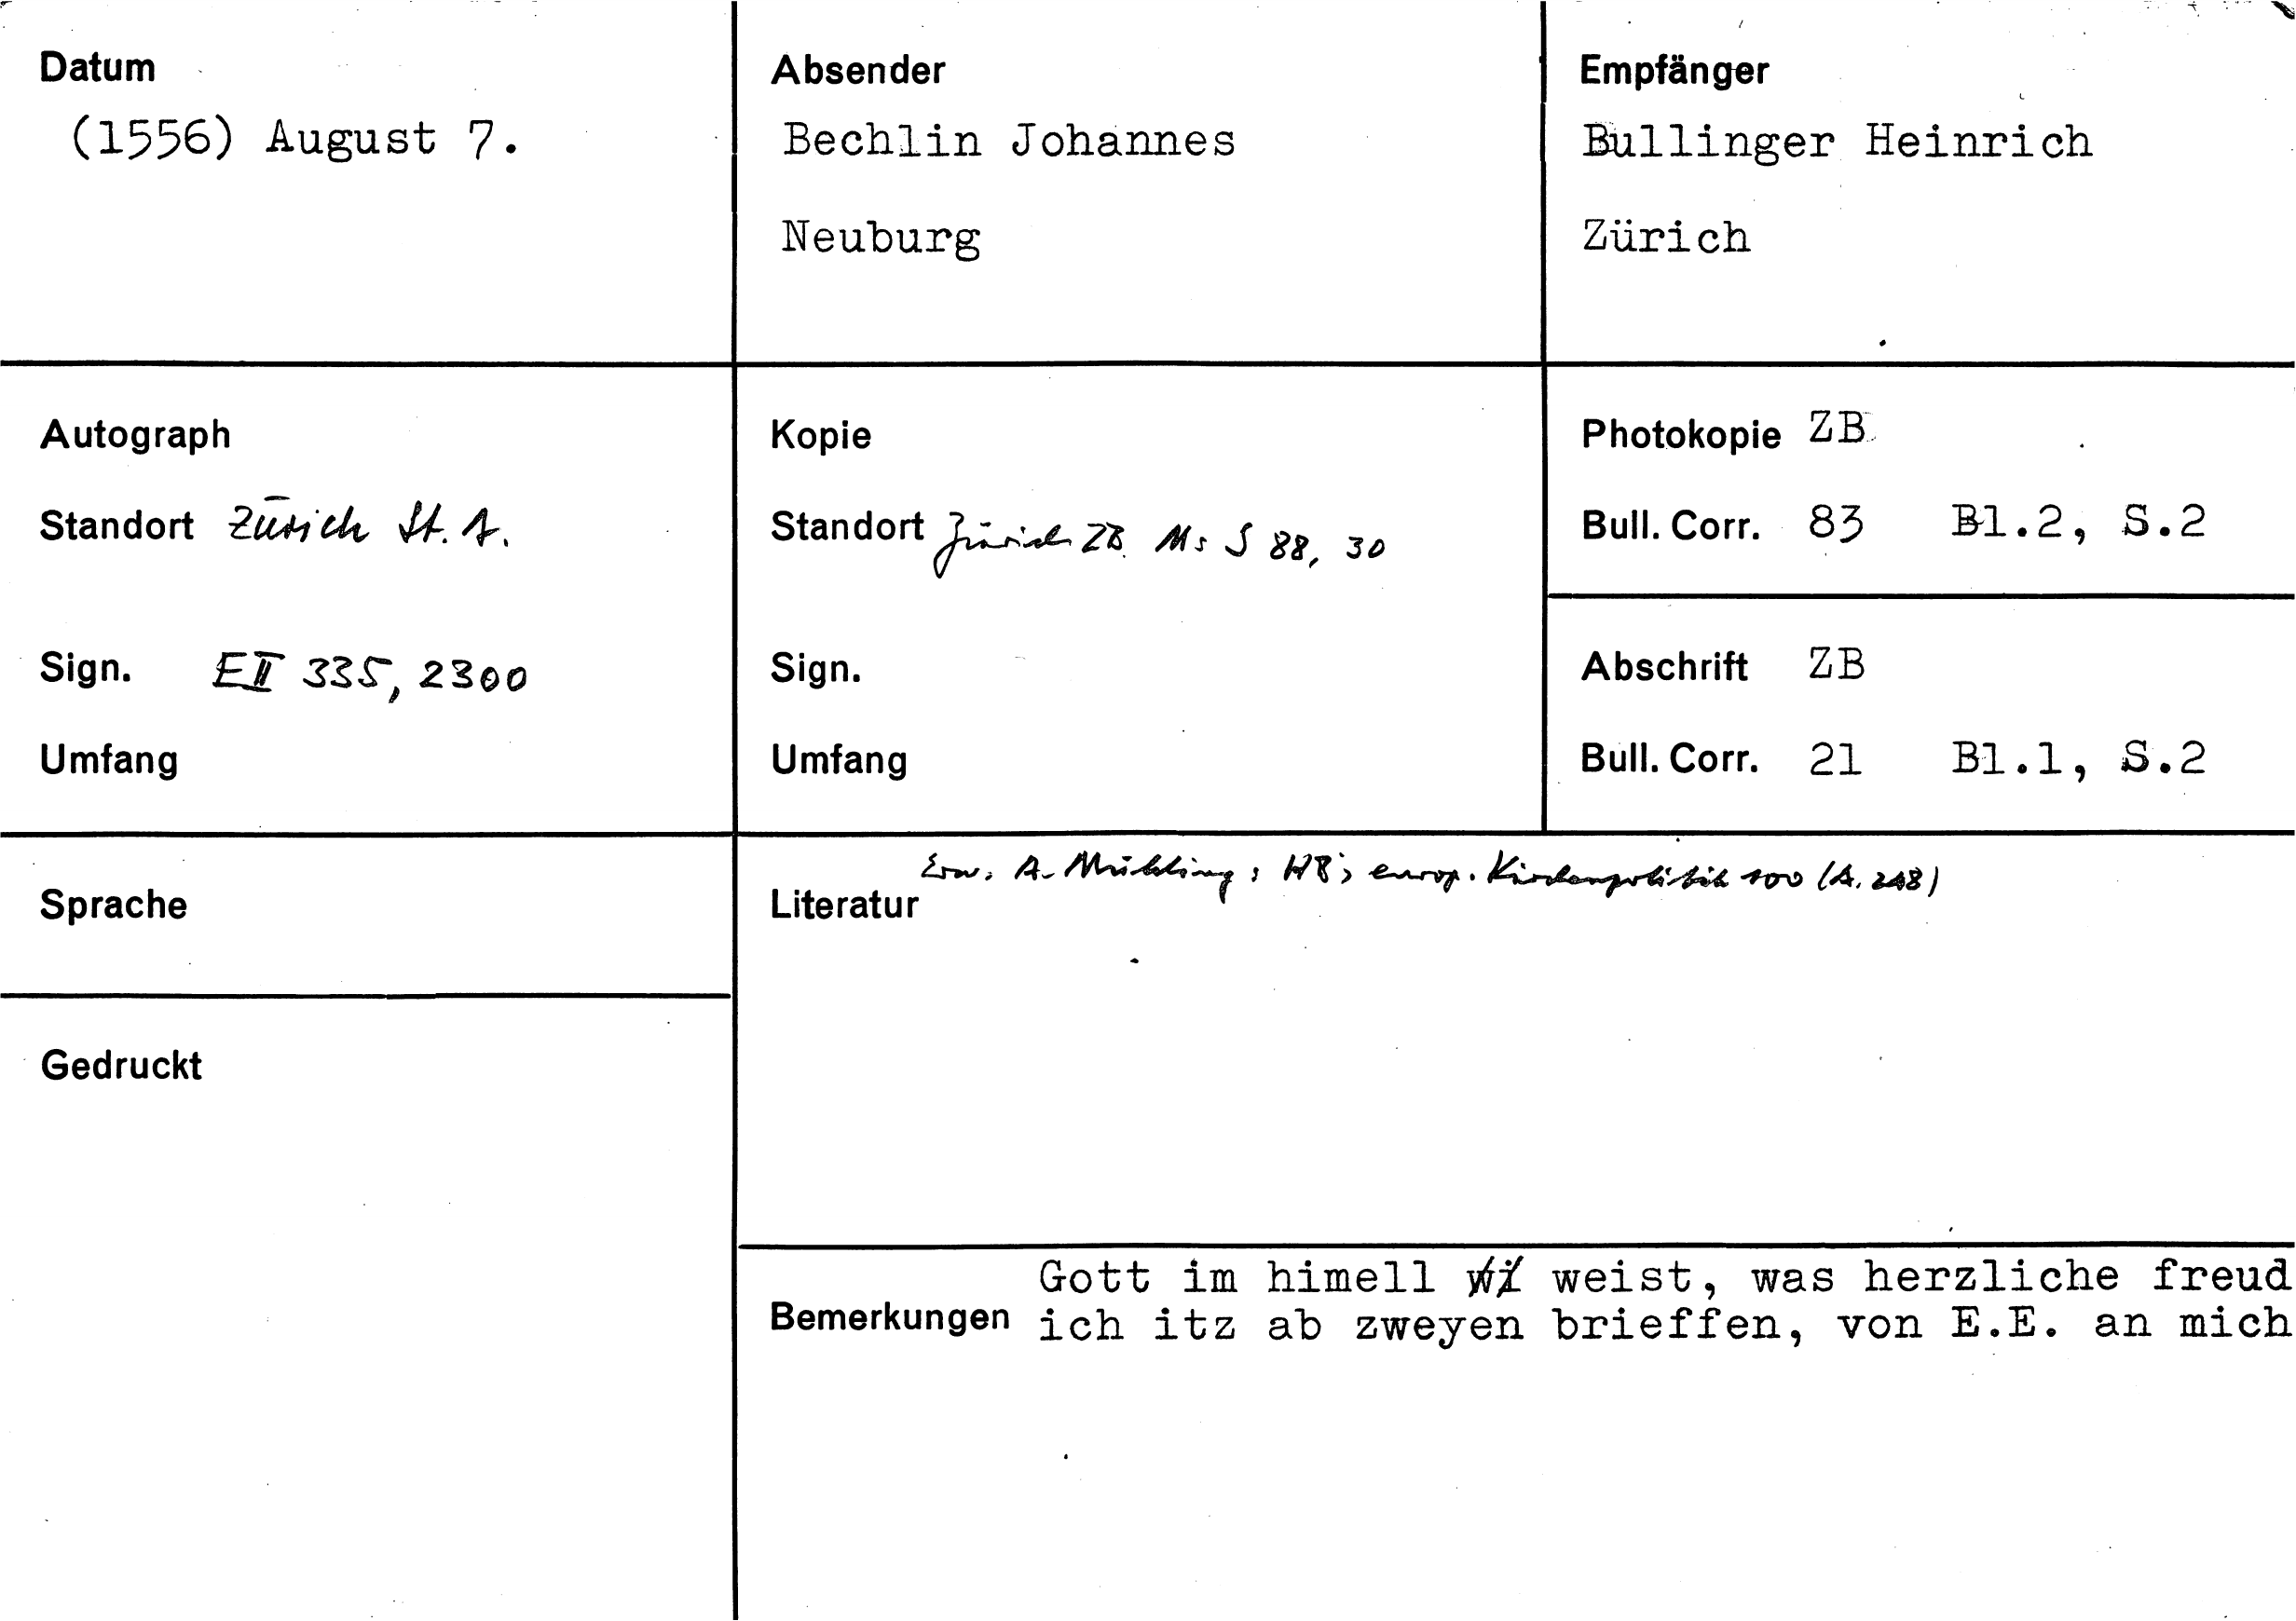 Datum
(1556) August 7.
Absender
Bechlin Johannes
Neuburg
Empfänger
Bullinger Heinrich
Zürich
Autograph
Standort Zürich St. A.
Sign. E II 335, 2300
Umfang
Kopie
Standort Zürich ZB Ms S 88, 30
Sign.
Umfang
Photokopie ZB
Bull. Corr. 83 Bl.2, S.2
Abschrift ZB
Bull. Corr. 21 Bl.1, S.2
Sprache
Gedruckt
Erw. A. Mühling, HB's europ. Kirchenpolitik 100 (A. 248)
Literatur
Gott im himell weist, was herzliche freud
Bemerkungen ich itz ab zweyen brieffen, von E.E. an mich